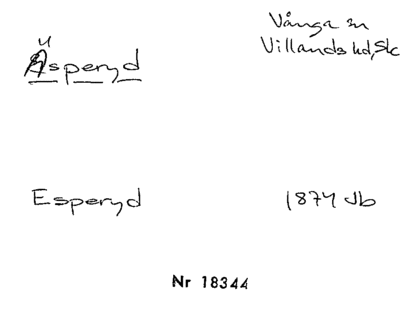 Äsperyd
Vånga sn
Villands hd, Skc
Esperyd
1874 Jb
Nr 18344